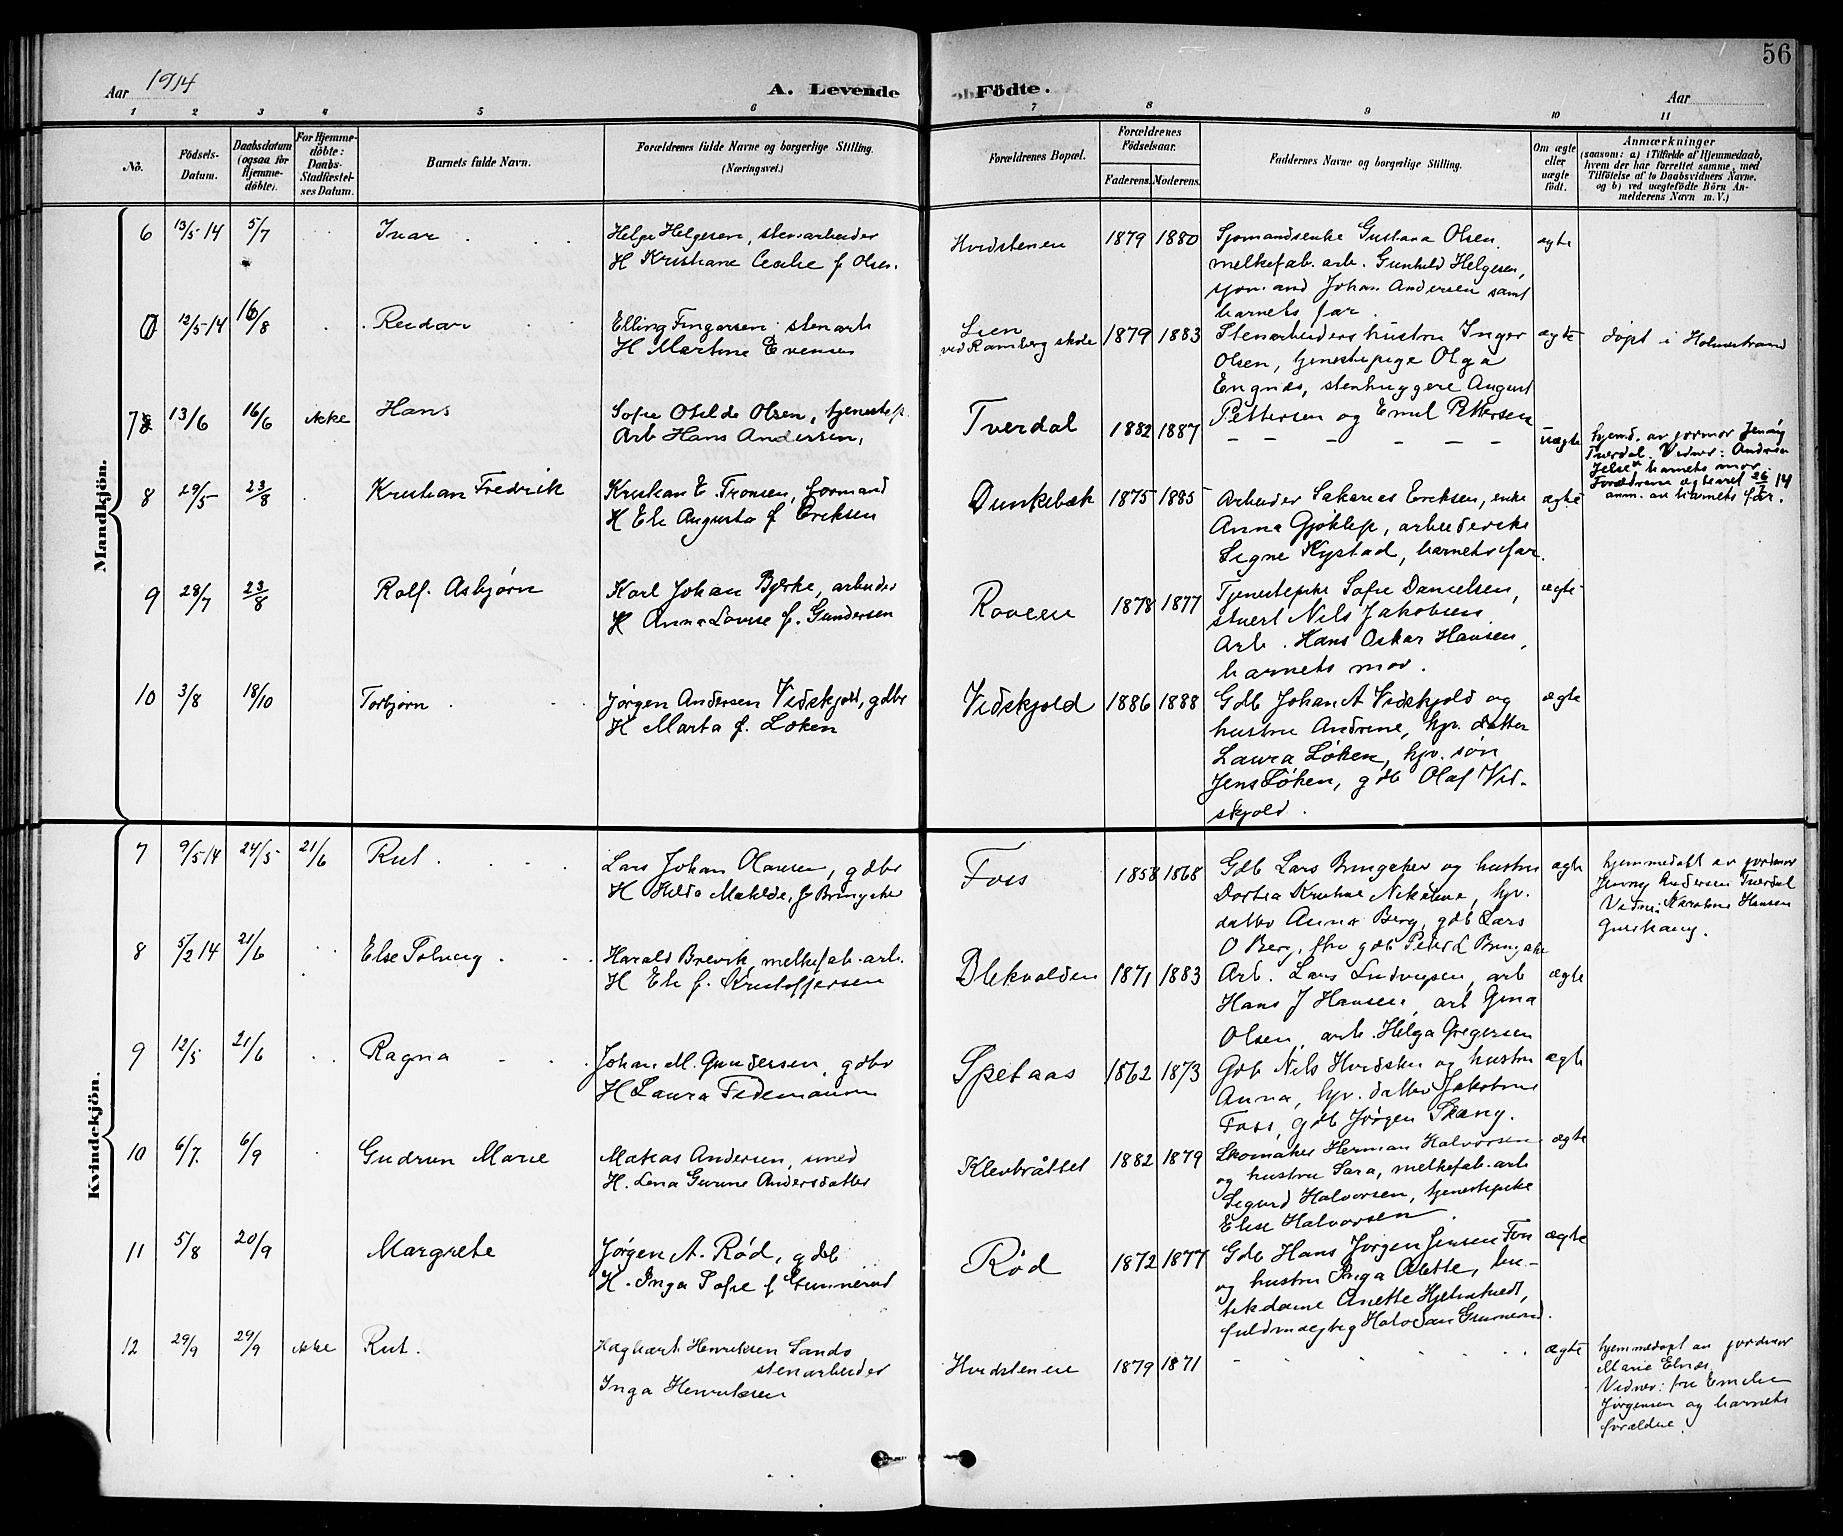 56
Aar 1914
A. Levende
Födte.
Aar
1 2 3 4 5 6 7 8 9 10 11
No.
Födsels-
Datum.
Daabsdatum
(ogsaa for
Hjemme-
döbte).
For Hjemme-
döbte:
Daabs-
Stadfæstel-
ses Datum.
Barnets fulde Navn.
Forældrenes fulde Navne og borgerlige Stilling.
(Næringsvei.)
Forældrenes Bopæl.
Forældrenes
Födselsaar.
Faderens.
Moderens.
Faddernes Navne og borgerlige Stilling.
Om ægte
eller
uægte
født.
Anmærkninger
(saasom: a) i Tilfælde af Hjemmedaab,
hvem der har forrettet samme, med
Tilföielse af to Daabsvidners Navne,
og b) ved uægtefödte Börn An-
melderens Navn m. V.)
Mandkjön.
6 13/5 14 5/7 Ivar
Helge Helgesen, stenarbeider
H Kristiane Cecilie f Olsen.
Hvidstenen 1879 1880
Sjomandsenke Gustava Olsen,
melkefab. arb. Gunhild Helgesen,
Johan Andersen samt
barnets far.
ægte
12/5 14 16/8 Reidar
Elling Fingarsen stenarb
H Martine Evensen
Lien
ved Ramberg skole 1879 1883
Stenarbeiders hustru Inger
Olsen, tjenestepige Olga
Engnæs, stenhuggere August
Pettersen og Emil Pettersen
ægte
døpt i Holmestrand
7 13/6 16/6 ikke Hans
Sofie Otilde Olsen, tjenestep.
Arb Hans Andersen,
Tverdal 1882 1887
uægte
hjemd. av jormor Jenny
Tverdal. Vidner: Andrea
barnets mor.
Forældrene egteviet 26/7 14
anm. av barnets far.
8 29/5 23/8 Kristian Fredrik
Kristian E. Tronsen, formand
H Eli Augusta f Eriksen
Dunkebæk 1875 1885
Arbeider Sakarias Eriksen, enke
Anna Gjøklep, arbeiderske
Signe Kystad, barnets far.
ægte
9 28/7 23/8 Rolf Asbjørn
Karl Johan Bjerke, arbeider
H Anna Lovise f. Gundersen
Roveen 1878 1877
Tjenestepike Sofie Danielsen,
stuert Nils Jakobsen
Arb. Hans Oskar Hansen,
barnets mor.
ægte
10 3/8 18/10 Torbjørn
Jørgen Andersen Vidskjold, gdbr
H Marta f. Løken
Vidskjold 1886 1888
Gdb Johan A Vidskjold og
hustru Andrine, hjv. datter
Laura Løken, hjv. søn
Jens Løken, gdb Olaf Vid-
skjold.
ægte
Kvindekjön.
7 9/5 14 24/5 21/6 Rut
Lars Johan Olausen, gdbr
H Hilda Matilde, f Bringaker
Foss 1858 1868
Gdb Lars Bringaker og hustru
Dortea Kristine Nikoline, hjv.
datter Anna Berg, gdb Lars
O Berg, fhv gdb Peter L Bringaker
ægte
hjemmedøbt av jordmor
Jenny Andersen Tverdal
Vidne: Karoline Hansen
8 5/2 14 21/6 Else Solveig
Harald Brevik melkefab. arb.
H Eli f. Kristoffersen
Blekvolden 1871 1883
Arb. Lars Ludvigsen, arb
Hans J Hansen, arb Gina
Olsen, arb. Helga Gregersen
ægte
9 12/5 21/6 Ragna
Johan M. Gundersen, gdbr
H Laura
Spetaas 1862 1873
Gdb Nils Hvidsten og hustru
Anna, hjv. datter Jakobine
Foss, gdb Jørgen Skang.
ægte
10 6/7 6/9 Gudrun Marie
Matias Andersen, smed
H. Lena Gurine Andersdatter
Klevbråttet 1882 1879
Skomaker Herman Halvorsen
og hustru Sara, melkefab. arb
Sigurd Halvorsen, tjenestepike
Elise Halvorsen.
ægte
11 5/8 20/9 Margrete
Jørgen A. Rød, gdb
H. Inga Sofie f Gunnerød
Rød 1872 1877
Gdb Hans Jørgen Jensen Foss
og hustru Inga Olette, bu-
tikdame Anette Hjelmtvedt,
fuldmægtig Halvdan Gunnerød.
ægte
12 29/9 29/9 ikke Rut.
Haghart Henriksen Sando
stenarbeider
Inga Henriksen
Hvidstenen 1879 1871
ægte
hjemmedøpt av jordmor
Marie Elnæs,
Vidner: fru Emelie
Jørgensen og barnets
forældre.